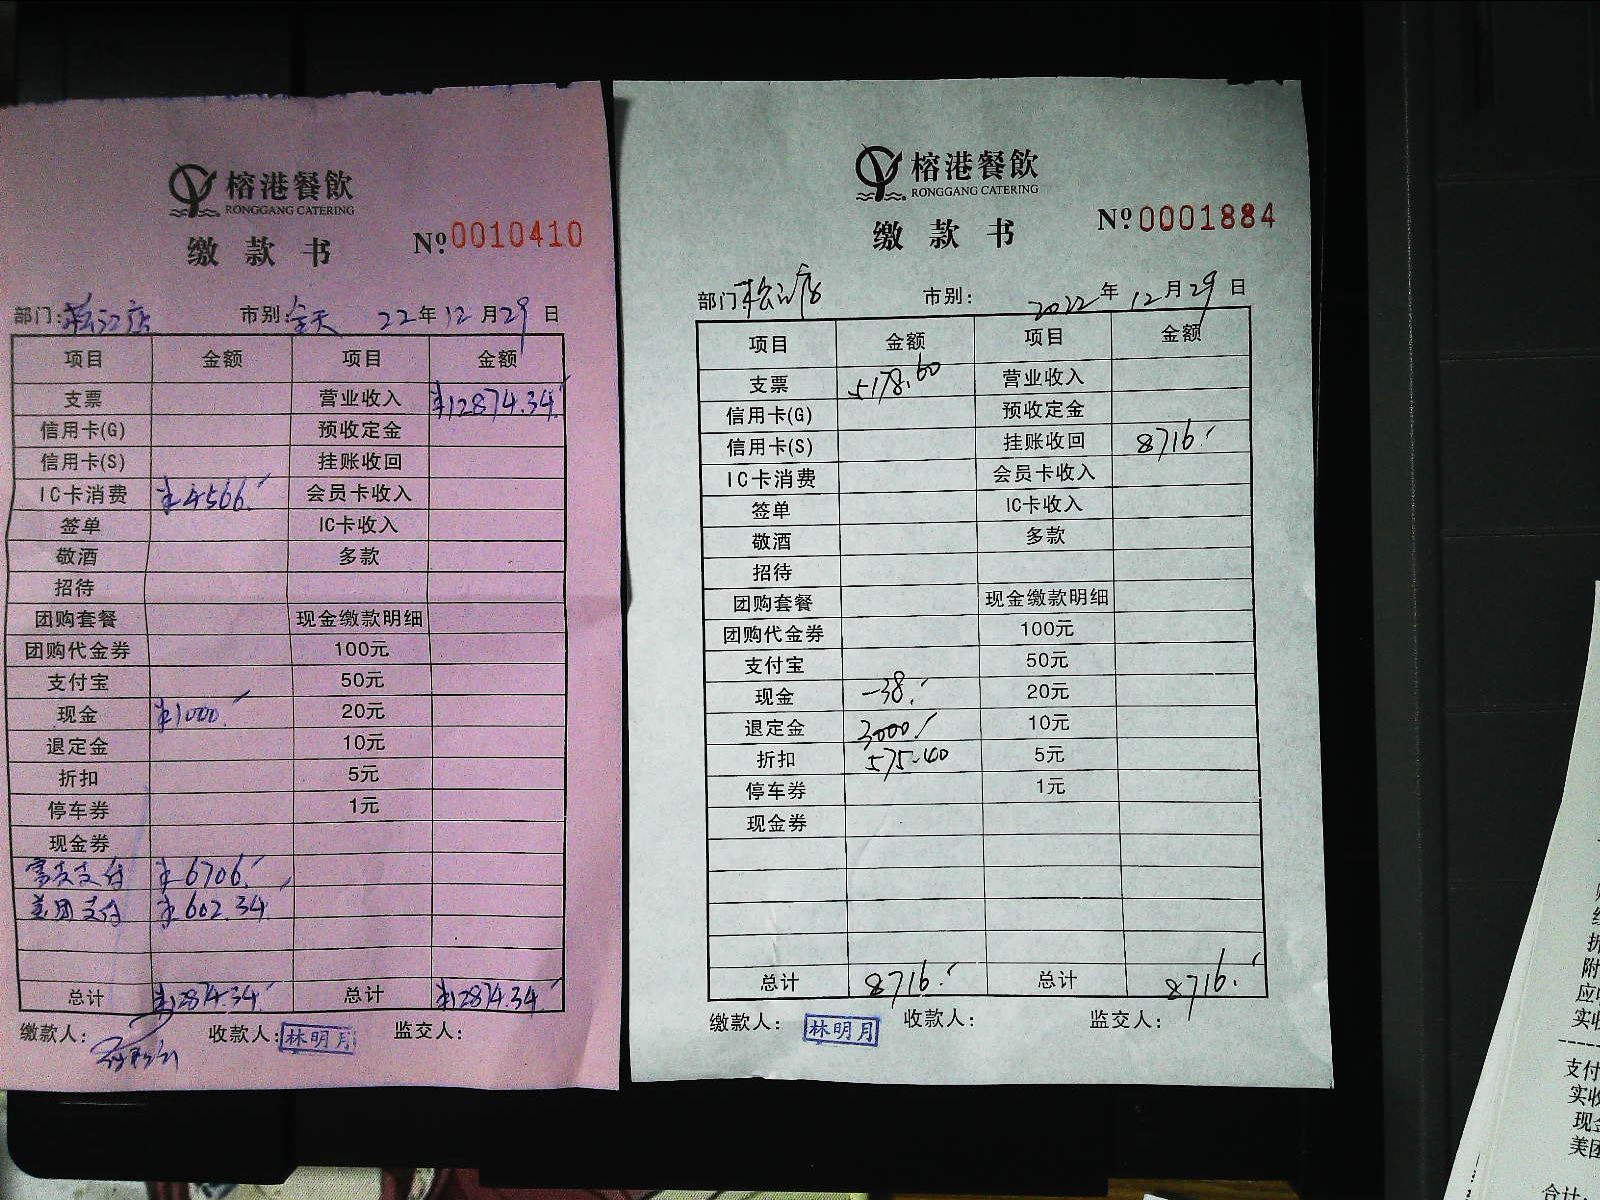 榕港餐飲
RONGGANG CATERING
缴款书 № 0010410
部门: 松江店 市别: 全天 22年12月29日
项目 金额 项目 金额
支票 营业收入 ¥12874.34
信用卡(G) 预收定金
信用卡(S) 挂账收回
IC卡消费 ¥4566. 会员卡收入
签单 IC卡收入
敬酒 多款
招待
团购套餐 现金缴款明细
团购代金券 100元
支付宝 50元
现金 ¥1000. 20元
退定金 10元
折扣 5元
停车券 1元
现金券
¥6706.
美团支付 ¥602.34
总计 ¥12874.34 总计 ¥12874.34
缴款人: 收款人: 林明月 监交人:
榕港餐飲
RONGGANG CATERING
缴款书 № 0001884
部门 松江店 市别: 2022年12月29日
项目 金额 项目 金额
支票 5178.60 营业收入
信用卡(G) 预收定金
信用卡(S) 挂账收回 8716.
IC卡消费 会员卡收入
签单 IC卡收入
敬酒 多款
招待
团购套餐 现金缴款明细
团购代金券 100元
支付宝 50元
现金 -38. 20元
退定金 3000 10元
折扣 575.40 5元
停车券 1元
现金券
总计 8716. 总计 8716.
缴款人: 林明月 收款人: 监交人:
折
附
应
实收
支付
实收
现金
美团
合计: